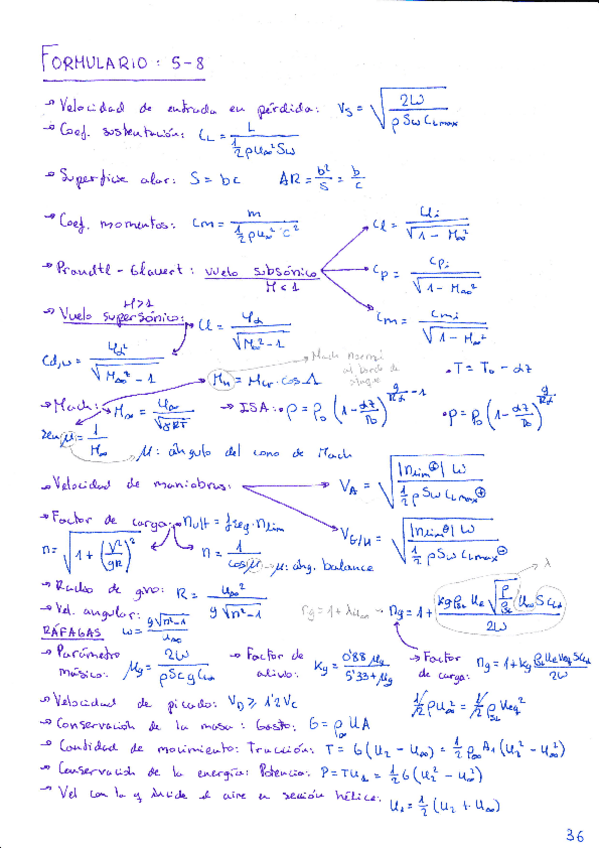 FORMULARIO: 5-8
→ Velocidad de entrada en pérdida: V_S = √(2W / ρ S_W C_Lmax)
→ Coef. sustentación: C_L = L / (½ ρ u∞² S_W)
→ Superficie alar: S = bc AR = b²/S = b/c
→ Coef. momentos: C_m = m / (½ ρ u∞² c²)
Cl = Cl_i / √(1 - M∞²)
→ Prandtl-Glauert: vuelo subsónico M < 1
C_p = C_pi / √(1 - M∞²)
C_m = C_mi / √(1 - M∞²)
M > 1
→ Vuelo supersónico: Cl = 4α / √(M∞² - 1)
C_d,w = 4α² / √(M∞² - 1)
Mach normal al borde de ataque
M_n = M_cr · cos Λ
• T = T_0 - αz
→ Mach: → M∞ = u∞ / √(γRT)
→ ISA: • ρ = ρ_0 (1 - αz/T_0)^(g/Rα - 1)
• p = p_0 (1 - αz/T_0)^(g/Rα)
sen μ = 1/M∞
μ: ángulo del cono de Mach
→ Velocidad de maniobras: V_A = √(|n_lim⊕| W / ½ ρ S_W C_Lmax⊕)
V_G/H = √(|n_lim⊖| W / ½ ρ S_W C_Lmax⊖)
→ Factor de carga: n_ult = f_seg · n_lim
n = √(1 + (V²/gR)²) n = 1/cos(μ) → μ: áng. balance
→ Radio de giro: R = u∞² / g√(n²-1)
→ Vel. angular: ω = g√(n²-1) / u∞
n_g = 1 + λu∞ → n_g = 1 + / 2W
λ
RÁFAGAS
→ Parámetro másico: μ_g = 2W / ρ S c g C_Lα
→ Factor de alivio: K_g = 0'88 μ_g / 5'33 + μ_g
→ Factor de carga: n_g = 1 + k_g / 2W
→ Velocidad de picado: V_D ≥ 1'2 V_C
½ ρ u∞² = ½ ρ_SL u_eq²
→ Conservación de la masa: Gasto: G = ρ∞ u A
→ Cantidad de movimiento: Tracción: T = G (u_2 - u∞) = ½ ρ∞ A_1 (u_2² - u∞²)
→ Conservación de la energía: Potencia: P = T u_1 = ½ G (u_2² - u∞²)
→ Vel con la q incide el aire en sección hélice: u_1 = ½ (u_2 + u∞)
36